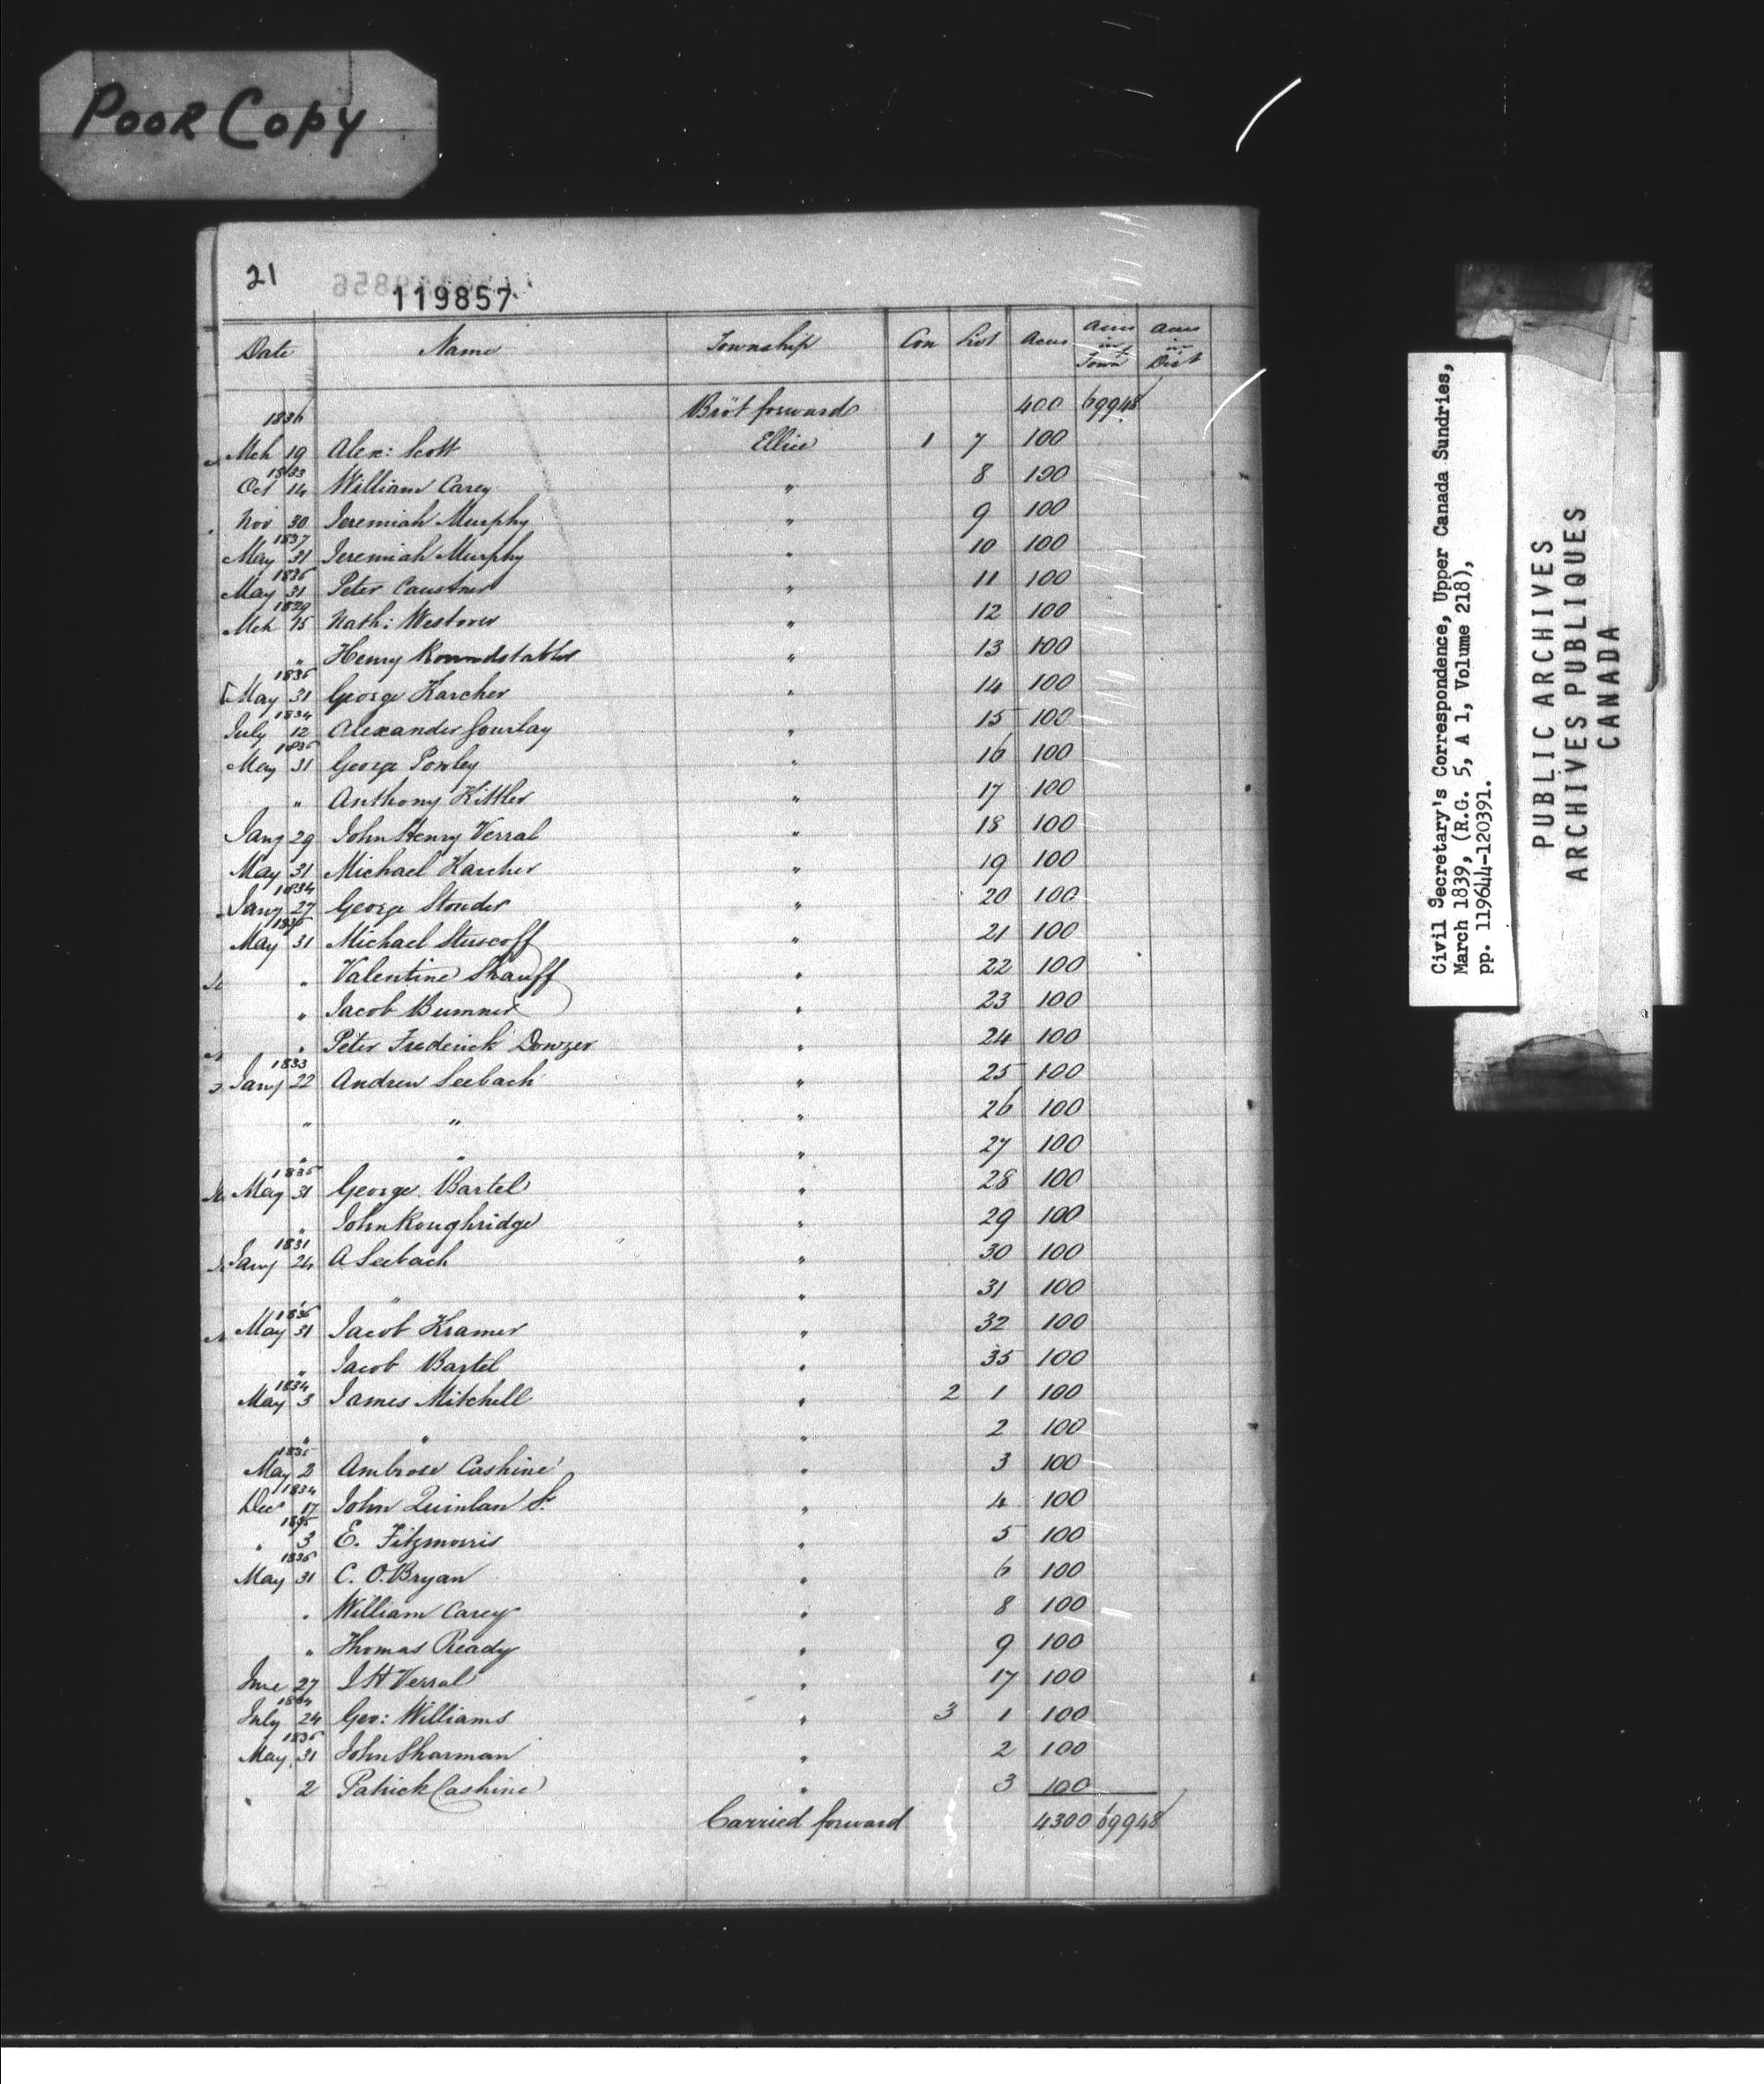 Poor Copy
21
119857
Date Name Township Con Lot Acres Acres in Town Acres in Dist
1836 Brôt forward 400 69948
Mch 19 Alex: Scott Ellice 1 7 100
1833
Oct 14 William Carey " 8 100
Nov 30 Jeremiah Murphy " 9 100
1837
May 31 Jeremiah Murphy " 10 100
1836
May 31 Peter " 11 100
1829
Mch 15 Nath: Westover " 12 100
" Henry Roundstabler " 13 100
1836
May 31 George Karcher " 14 100
1834
July 12 Alexander Gourlay " 15 100
1836
May 31 George Powley " 16 100
" Anthony Kittler " 17 100
Jany 29 John Henry Verral " 18 100
May 31 Michael Karcher " 19 100
1834
Jany 27 George Stonder " 20 100
1836
May 31 Michael " 21 100
" Valentine Shauff " 22 100
" Jacob Bumner " 23 100
" Peter Frederick Dowzer " 24 100
1833
Jany 22 Andrew Seebach " 25 100
" " " 26 100
" " " 27 100
1836
May 31 George Bartel " 28 100
" John Roughridge " 29 100
1831
Jany 24 A Seebach " 30 100
" " " 31 100
1836
May 31 Jacob Kramer " 32 100
" Jacob Bartel " 35 100
1834
May 3 James Mitchell " 2 1 100
" " " 2 100
1835
May 2 Ambrose Cashine " 3 100
1834
Dec 17 John Quinlan Sr. " 4 100
1835
" 3 E. Fitzmorris " 5 100
1836
May 31 C. O.Bryan " 6 100
" William Carey " 8 100
" Thomas Ready " 9 100
June 27 J H Verral " 17 100
1834
July 24 Geo: Williams " 3 1 100
1836
May 31 John Sharman " 2 100
" 2 Patrick Cashine " 3 100
Carried forward 4300 69948
Civil Secretary's Correspondence, Upper Canada Sundries,
March 1839, (R.G. 5, A 1, Volume 218),
pp. 119644-120391.
PUBLIC ARCHIVES
ARCHIVES PUBLIQUES
CANADA